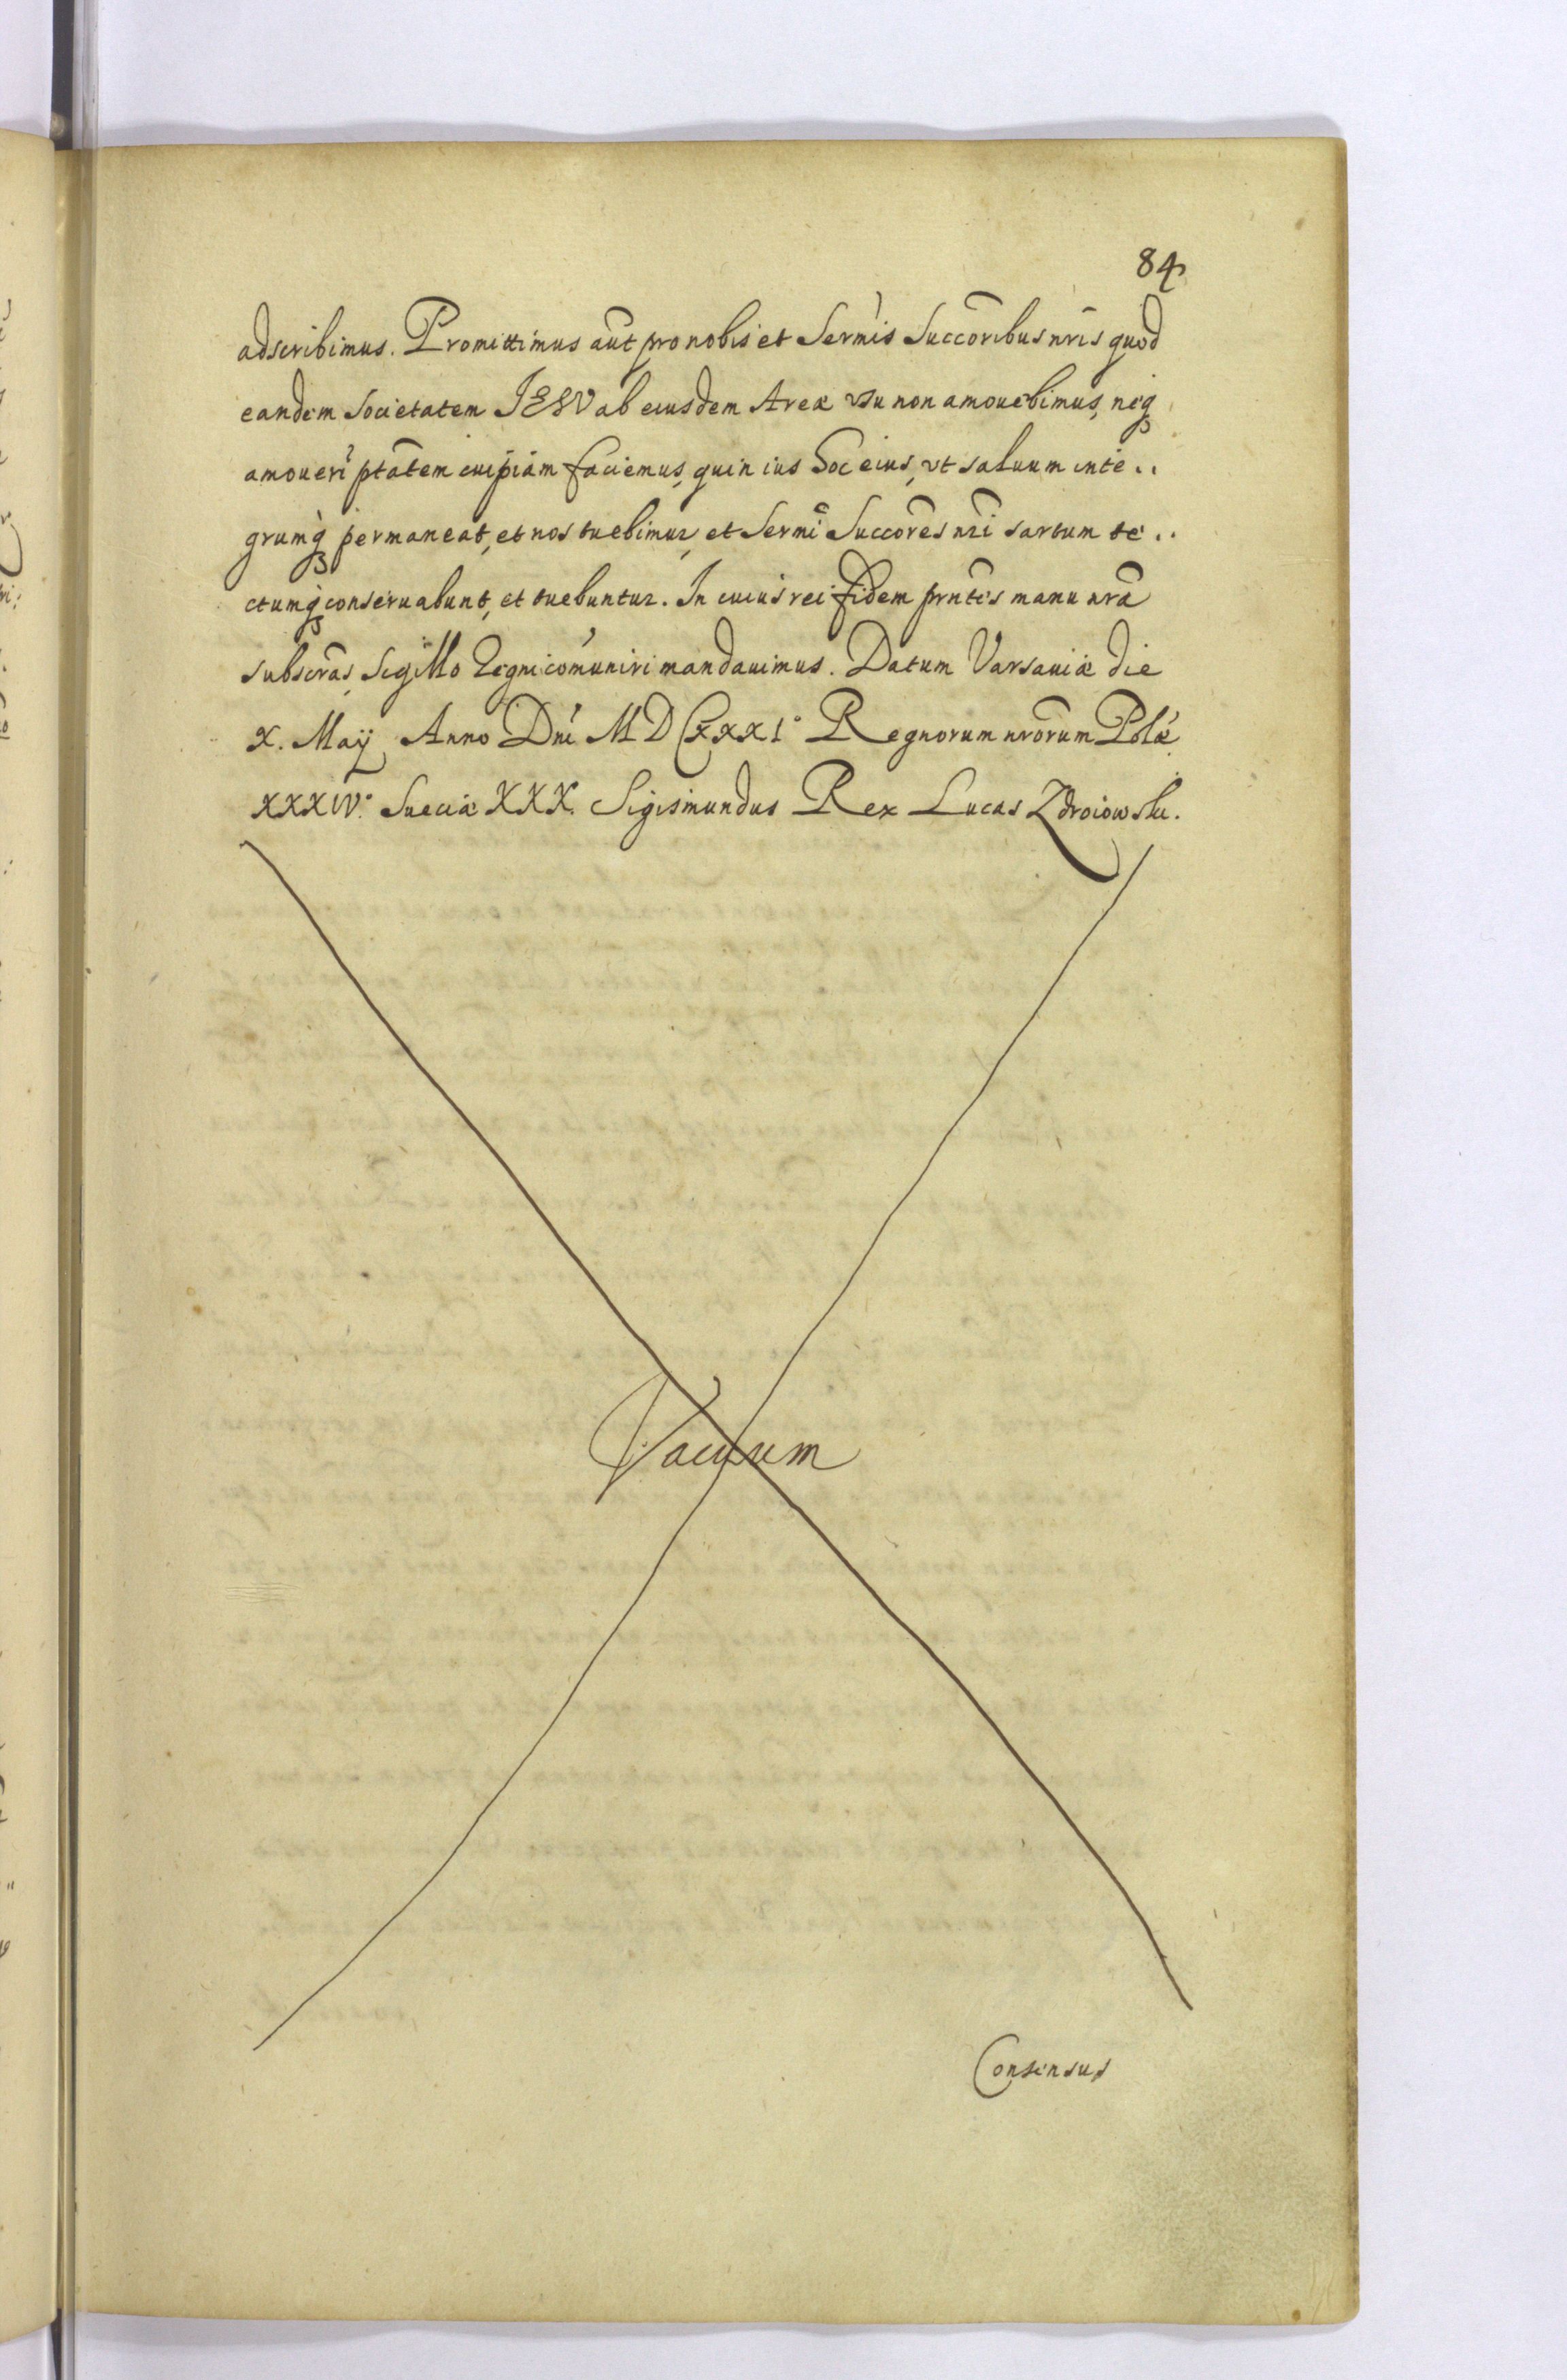 84
adscribimus. Promittimus aūt pro nobis et Sermis Succoribus nris quod
eandem Societatem JESV ab eiusdem Areæ vsu non amouebimus, neq
amoueri ptatem cuipiam faciemus, quin ius hoc eius, vt saluum inte..
grumq permaneat, et nos tuebimur, et Sermi Succores nri sartum te..
ctumq conseruabunt, et tuebuntur. In cuius rei fidem prntes manu nra
subscras, Sigillo Regni comuniri mandauimus. Datum Varsauiæ die
X. Maÿ Anno Dni MDCXXXI° Regnorum nrorum Polæ
XXXXIV.° Sueciæ XXX. Sigismundus Rex Lucas Zdroiowski.
Vacuum
Consensus